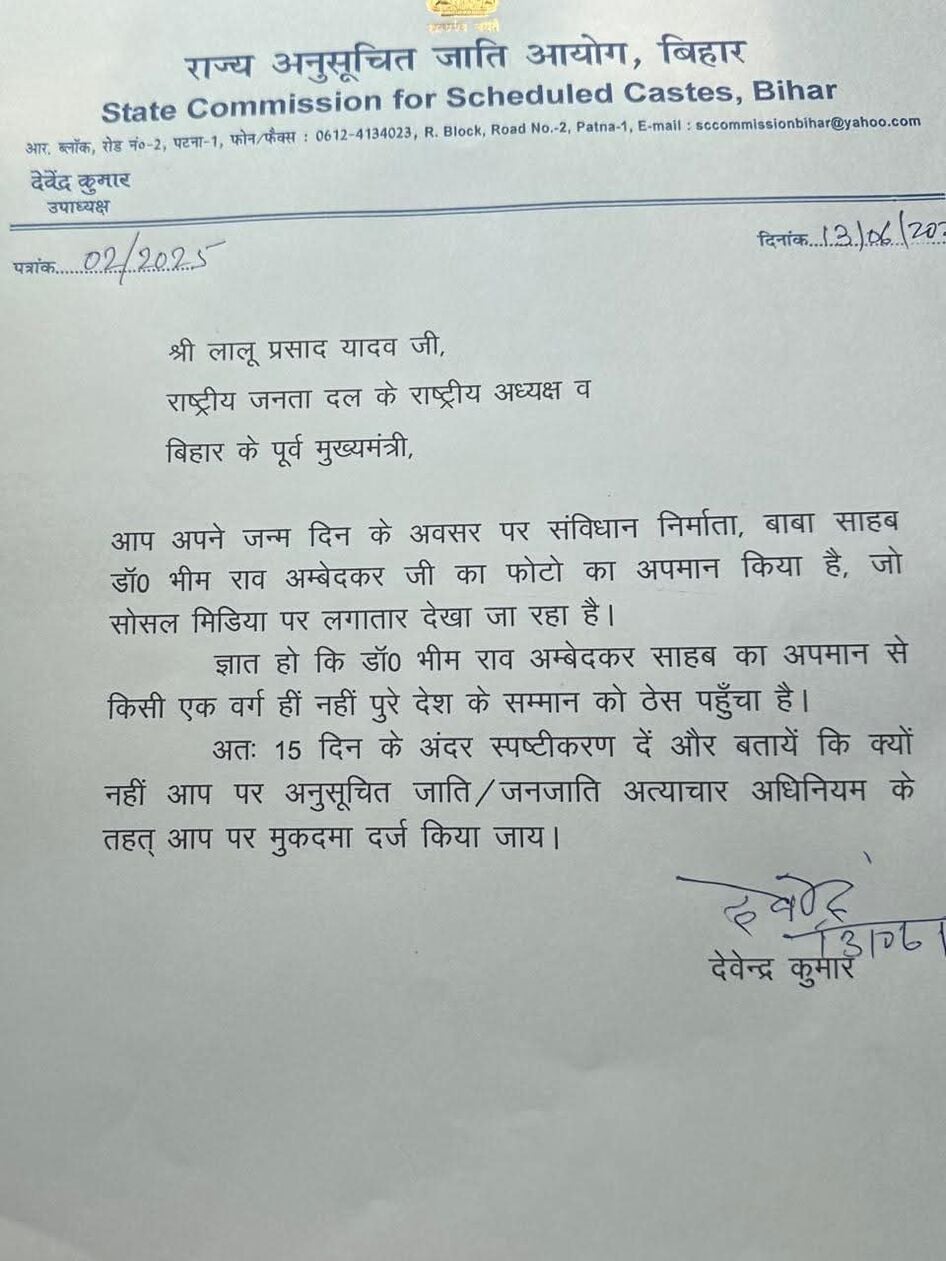 सत्यमेव जयते
राज्य अनुसूचित जाति आयोग, बिहार
State Commission for Scheduled Castes, Bihar
आर. ब्लॉक, रोड नं०-2, पटना-1, फोन/फैक्स : 0612-4134023, R. Block, Road No.-2, Patna-1, E-mail : sccommissionbihar@yahoo.com
देवेंद्र कुमार
उपाध्यक्ष
पत्रांक.....02/2025
दिनांक...13/06/202
श्री लालू प्रसाद यादव जी,
राष्ट्रीय जनता दल के राष्ट्रीय अध्यक्ष व
बिहार के पूर्व मुख्यमंत्री,
आप अपने जन्म दिन के अवसर पर संविधान निर्माता, बाबा साहब
डॉ0 भीम राव अम्बेदकर जी का फोटो का अपमान किया है, जो
सोसल मिडिया पर लगातार देखा जा रहा है।
ज्ञात हो कि डॉ0 भीम राव अम्बेदकर साहब का अपमान से
किसी एक वर्ग हीं नहीं पुरे देश के सम्मान को ठेस पहुँचा है।
अतः 15 दिन के अंदर स्पष्टीकरण दें और बतायें कि क्यों
नहीं आप पर अनुसूचित जाति/जनजाति अत्याचार अधिनियम के
तहत् आप पर मुकदमा दर्ज किया जाय।
13/06/
देवेन्द्र कुमार